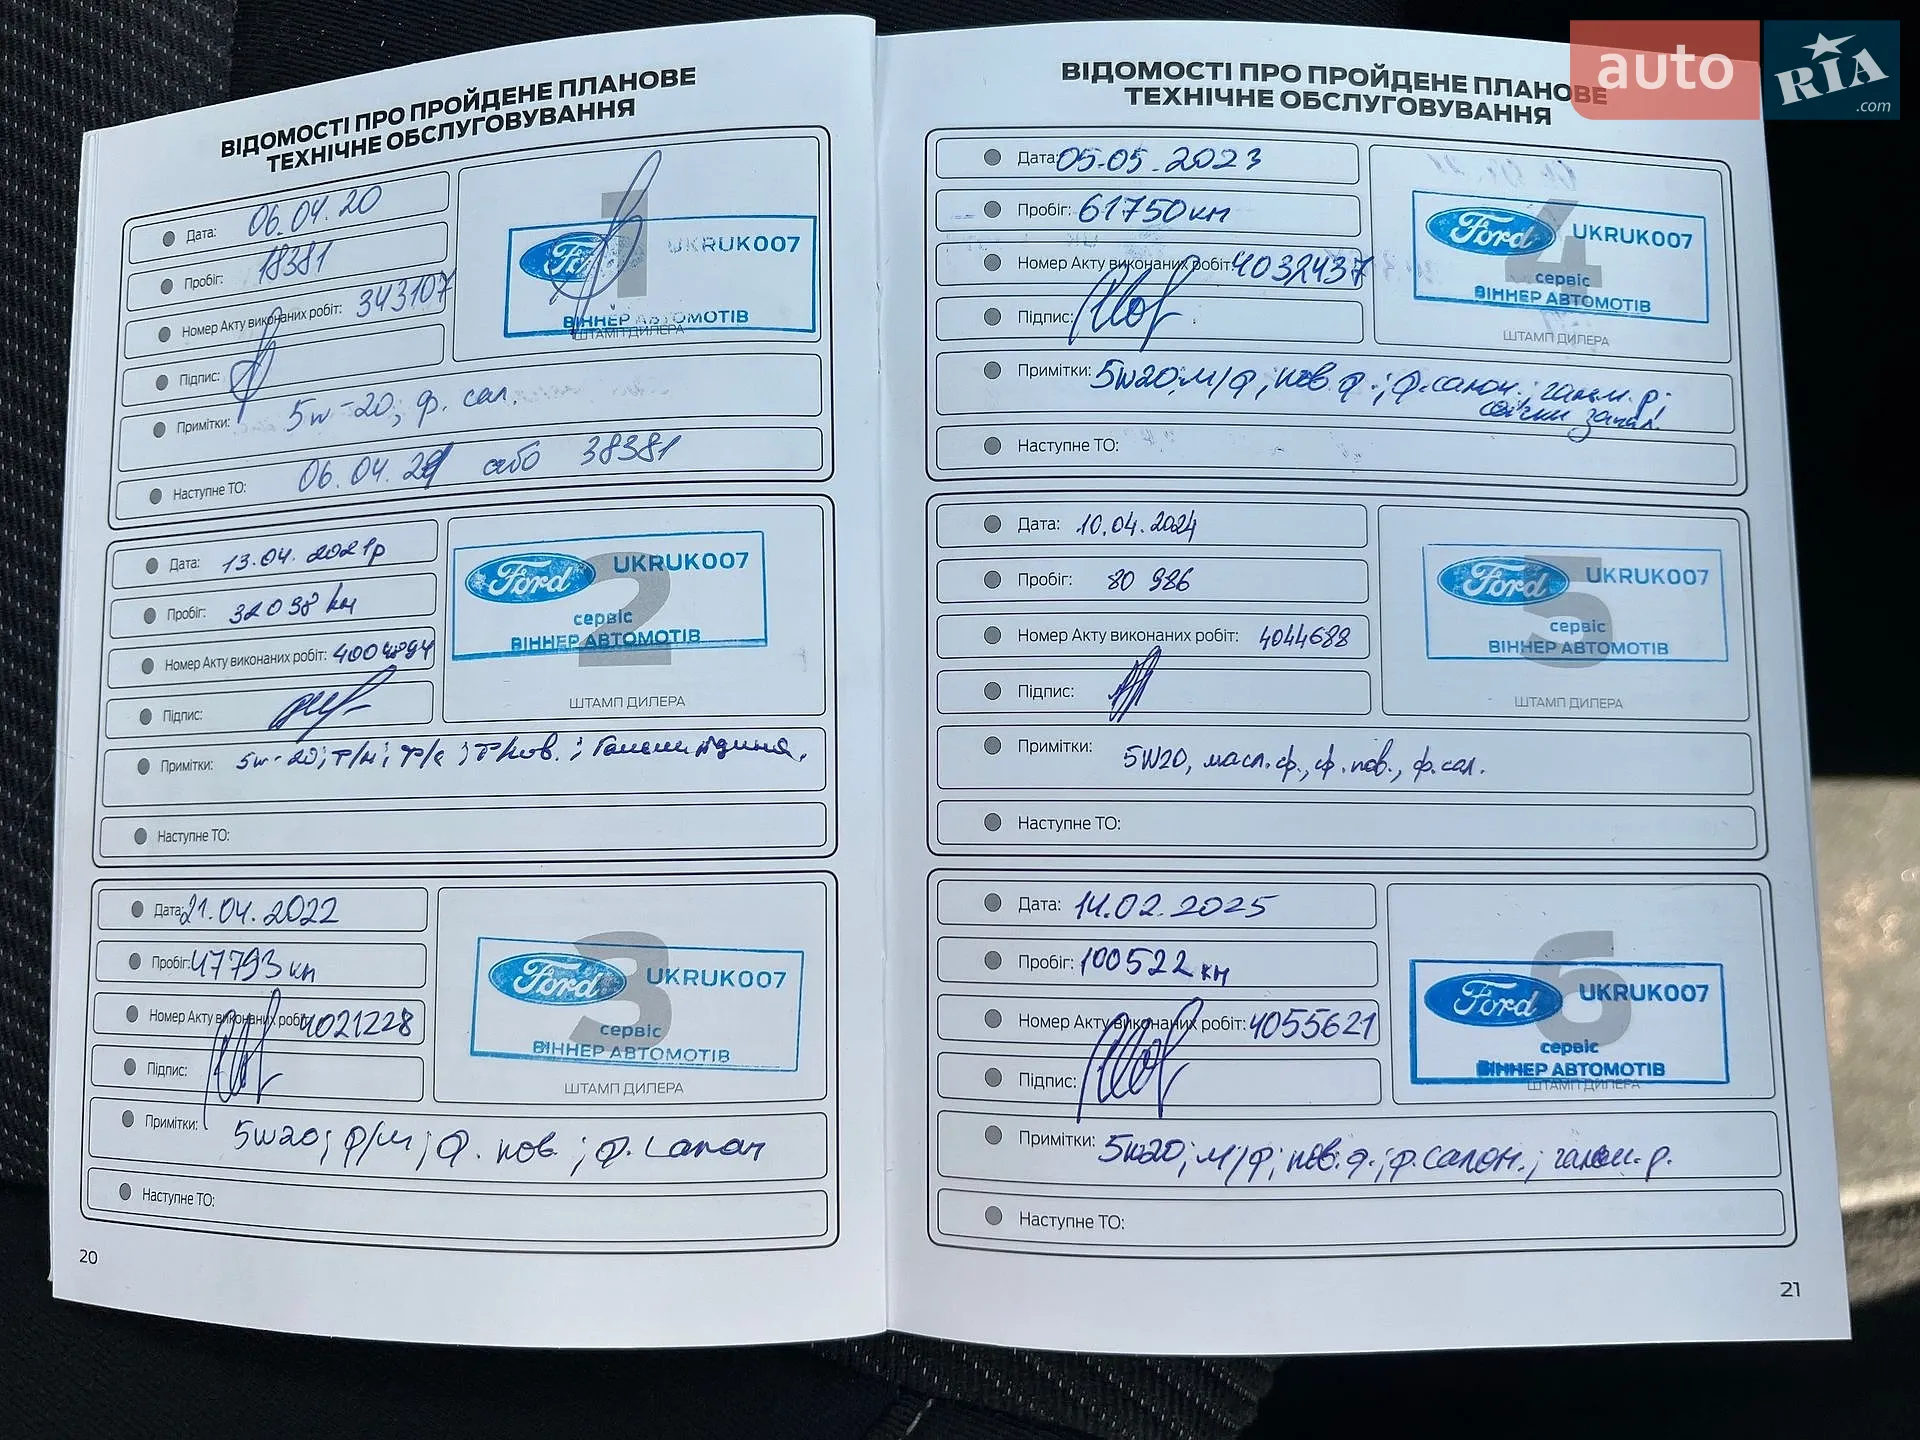 auto RIA.com
ВІДОМОСТІ ПРО ПРОЙДЕНЕ ПЛАНОВЕ
ТЕХНІЧНЕ ОБСЛУГОВУВАННЯ
Дата: 06.04.20
Пробіг: 18381
Номер Акту виконаних робіт: 343107
Підпис:
1
Ford UKRUK007
ВІННЕР АВТОМОТІВ
ШТАМП ДИЛЕРА
Примітки: 5w-20, ф. сал.
Наступне ТО: 06.04.21 або 38381
Дата: 13.04.2021р
Пробіг: 32098 км
Номер Акту виконаних робіт:
Підпис:
2
Ford UKRUK007
сервіс
ВІННЕР АВТОМОТІВ
ШТАМП ДИЛЕРА
Примітки: 5w-20;
Наступне ТО:
Дата: 21.04.2022
Пробіг: 47793 км
Номер Акту виконаних робіт: 4021228
Підпис:
3
Ford UKRUK007
сервіс
ВІННЕР АВТОМОТІВ
ШТАМП ДИЛЕРА
Примітки: 5w20; ф/м; ф. пов.; ф. салон
Наступне ТО:
20
ВІДОМОСТІ ПРО ПРОЙДЕНЕ ПЛАНОВЕ
ТЕХНІЧНЕ ОБСЛУГОВУВАННЯ
Дата: 05.05.2023
Пробіг: 61750 км
Номер Акту виконаних робіт: 4032437
Підпис:
4
Ford UKRUK007
сервіс
ВІННЕР АВТОМОТІВ
ШТАМП ДИЛЕРА
Примітки: 5w20; м/ф; пов. ф.; ф. салон.; гальм. р.
свічки запал.
Наступне ТО:
Дата: 10.04.2024
Пробіг: 80 986
Номер Акту виконаних робіт: 4044688
Підпис:
5
Ford UKRUK007
сервіс
ВІННЕР АВТОМОТІВ
ШТАМП ДИЛЕРА
Примітки: 5W20, масл. ф., ф. пов., ф. сал.
Наступне ТО:
Дата: 14.02.2025
Пробіг: 100522 км
Номер Акту виконаних робіт: 4055621
Підпис:
6
Ford UKRUK007
сервіс
ВІННЕР АВТОМОТІВ
ШТАМП ДИЛЕРА
Примітки: 5w20; м/ф; пов. ф.; ф. салон.; гальм. р.
Наступне ТО:
21